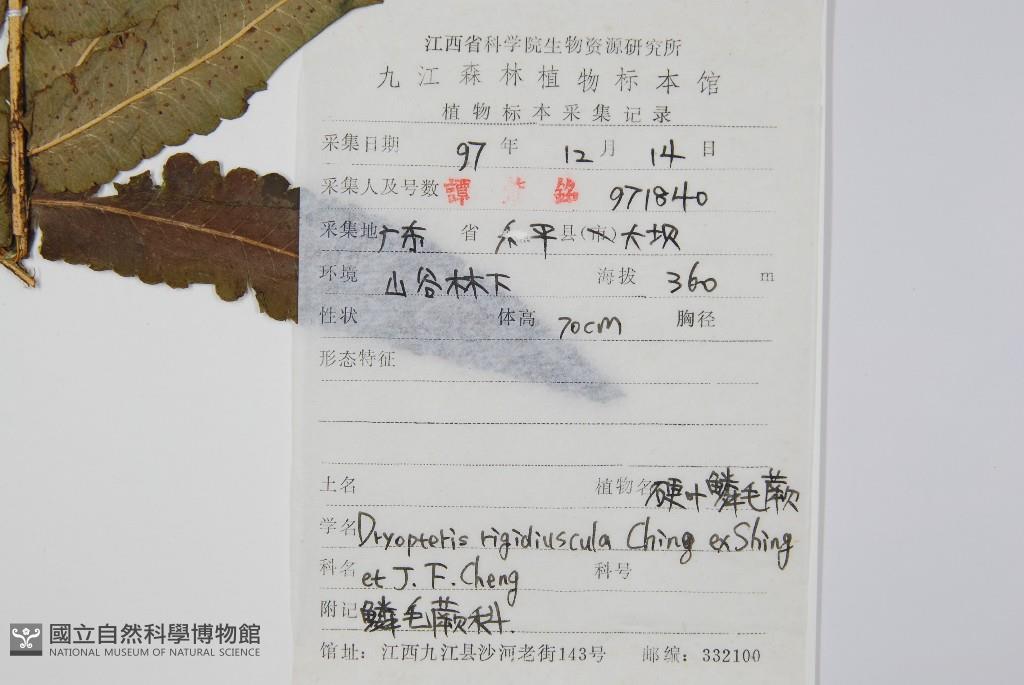 江西省科学院生物资源研究所
九江森林植物标本馆
植物标本采集记录
采集日期 97 年 12 月 14 日
采集人及号数 譚 銘 971840
采集地 广东 省 平 县(市) 大坝
环境 山谷林下 海拔 360 m
性状 体高 70cm 胸径
形态特征
土名 植物名 硬叶鳞毛蕨
学名 Dryopteris rigidiuscula Ching ex Shing
科名 et J. F. Cheng 科号
附记 鳞毛蕨科.
馆址: 江西九江县沙河老街143号 邮编: 332100
國立自然科學博物館
NATIONAL MUSEUM OF NATURAL SCIENCE